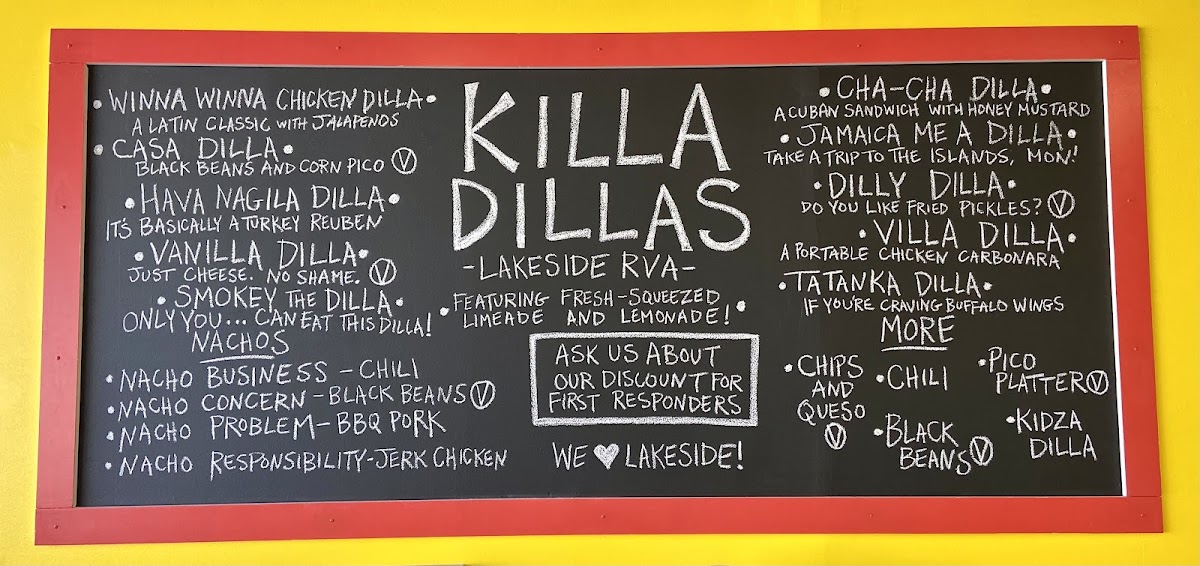 • WINNA WINNA CHICKEN DILLA •
A LATIN CLASSIC WITH JALAPENOS
• CASA DILLA •
BLACK BEANS AND CORN PICO Ⓥ
• HAVA NAGILA DILLA •
IT'S BASICALLY A TURKEY REUBEN
• VANILLA DILLA •
JUST CHEESE. NO SHAME. Ⓥ
• SMOKEY THE DILLA •
ONLY YOU... CAN EAT THIS DILLA!
NACHOS
• NACHO BUSINESS - CHILI
• NACHO CONCERN - BLACK BEANS Ⓥ
• NACHO PROBLEM - BBQ PORK
• NACHO RESPONSIBILITY - JERK CHICKEN
KILLA
DILLAS
- LAKESIDE RVA -
• FEATURING FRESH-SQUEEZED •
LIMEADE AND LEMONADE!
ASK US ABOUT
OUR DISCOUNT FOR
FIRST RESPONDERS
WE ♥ LAKESIDE!
• CHA-CHA DILLA •
A CUBAN SANDWICH WITH HONEY MUSTARD
• JAMAICA ME A DILLA •
TAKE A TRIP TO THE ISLANDS, MON!
• DILLY DILLA •
DO YOU LIKE FRIED PICKLES? Ⓥ
• VILLA DILLA •
A PORTABLE CHICKEN CARBONARA
• TATANKA DILLA •
IF YOU'RE CRAVING BUFFALO WINGS
MORE
• CHIPS
AND
QUESO
Ⓥ
• CHILI
• BLACK
BEANS Ⓥ
• PICO
PLATTER Ⓥ
• KIDZA
DILLA